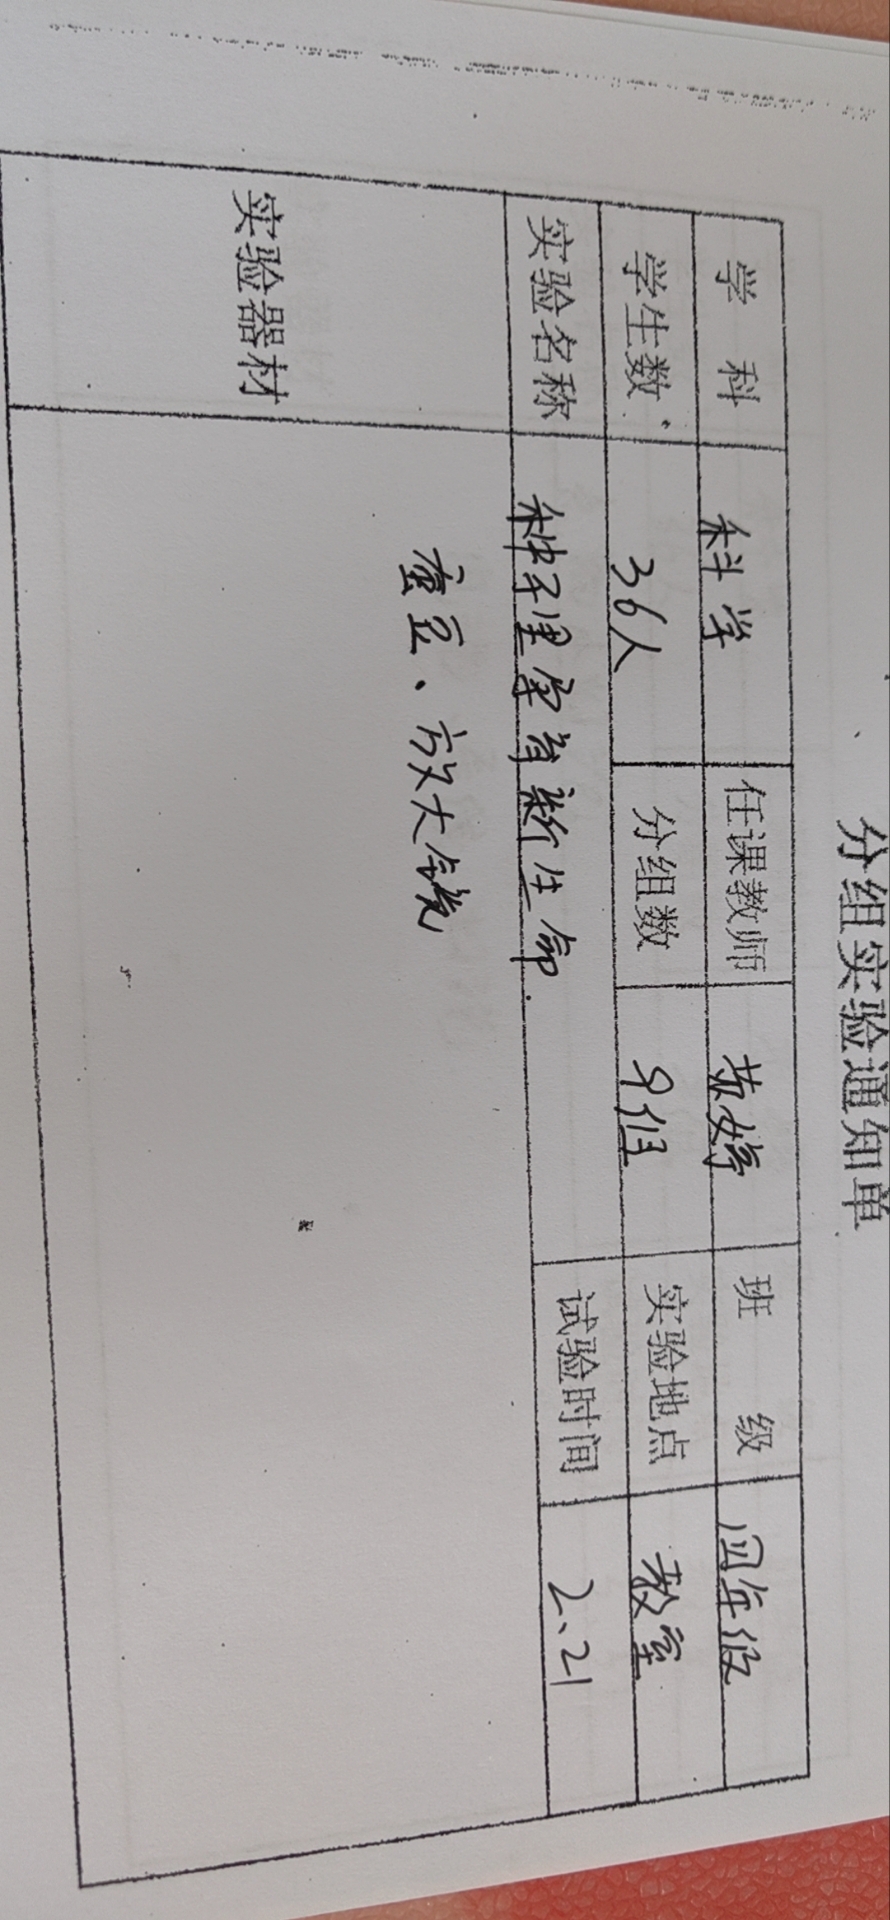 分组实验通知单
学 科 科学 任课教师 苏婷 班 级 四年级
学生数 36人 分组数 9组 实验地点 教室
实验名称 种子里孕育新生命. 试验时间 2、21
实验器材 蚕豆、放大镜